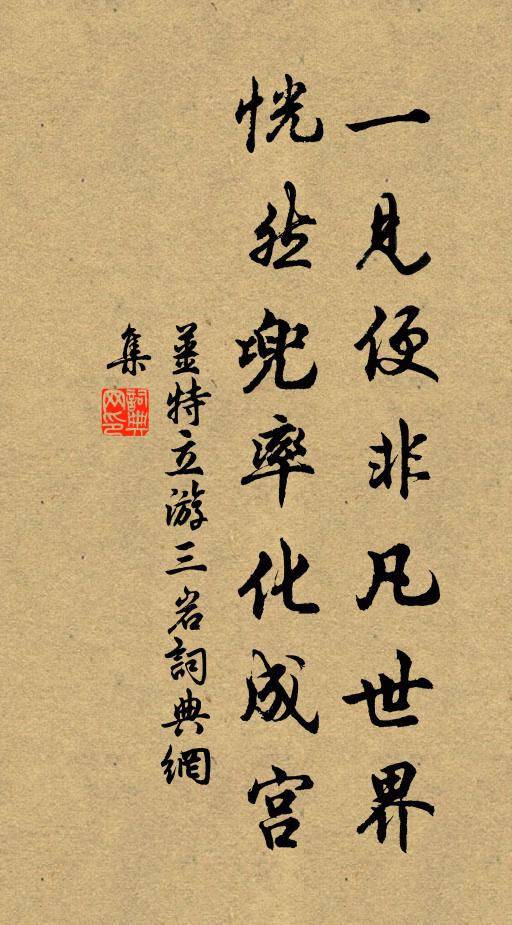 一见便非凡世界
恍然兜率化成宫
姜特立游三岩詞典網
集
詞典网印